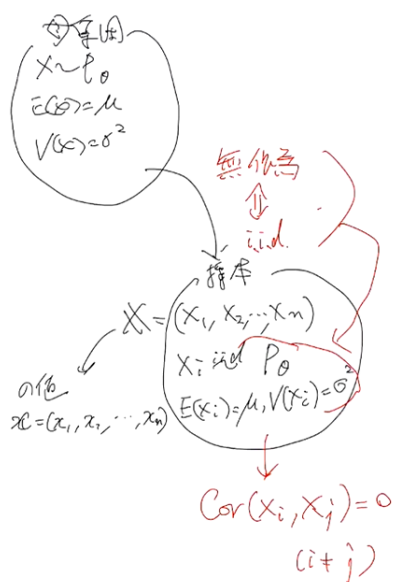 母集団
X～P_θ
E(X)=μ
V(X)=σ²
無作為
⇕
i.i.d.
標本
X=(X₁, X₂, …, Xn)
Xi iid P_θ
E(Xi)=μ, V(Xi)=σ²
の値
x=(x₁, x₂, …, xn)
Cov(Xi, Xj)=0
(i≠j)